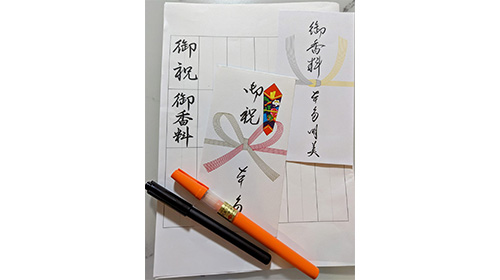 御祝
御香料
御祝
本多
御香料
本多明美